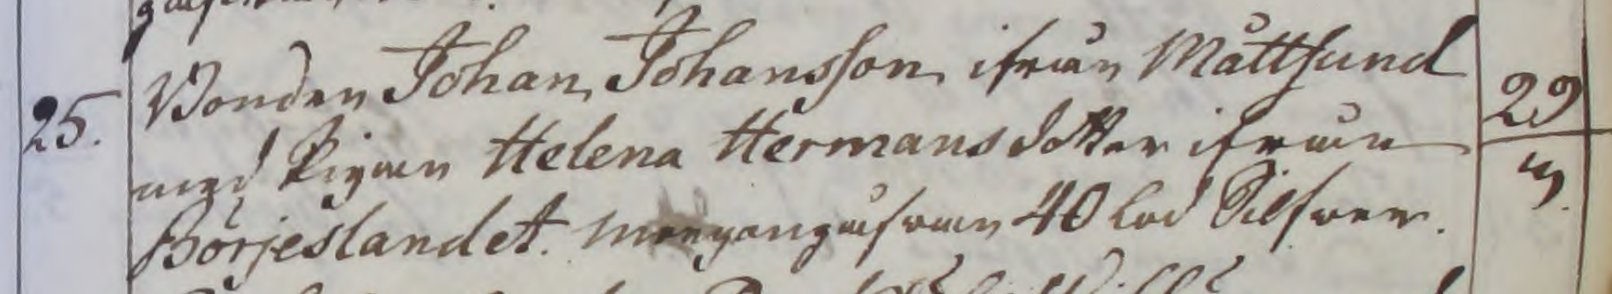 25. Bonden Johan Johansson ifrån Måttsund 29
med Pigan Helena Hermansdotter ifrån 3.
Börjeslandet. Morgongåfvan 40 lod Silfver.